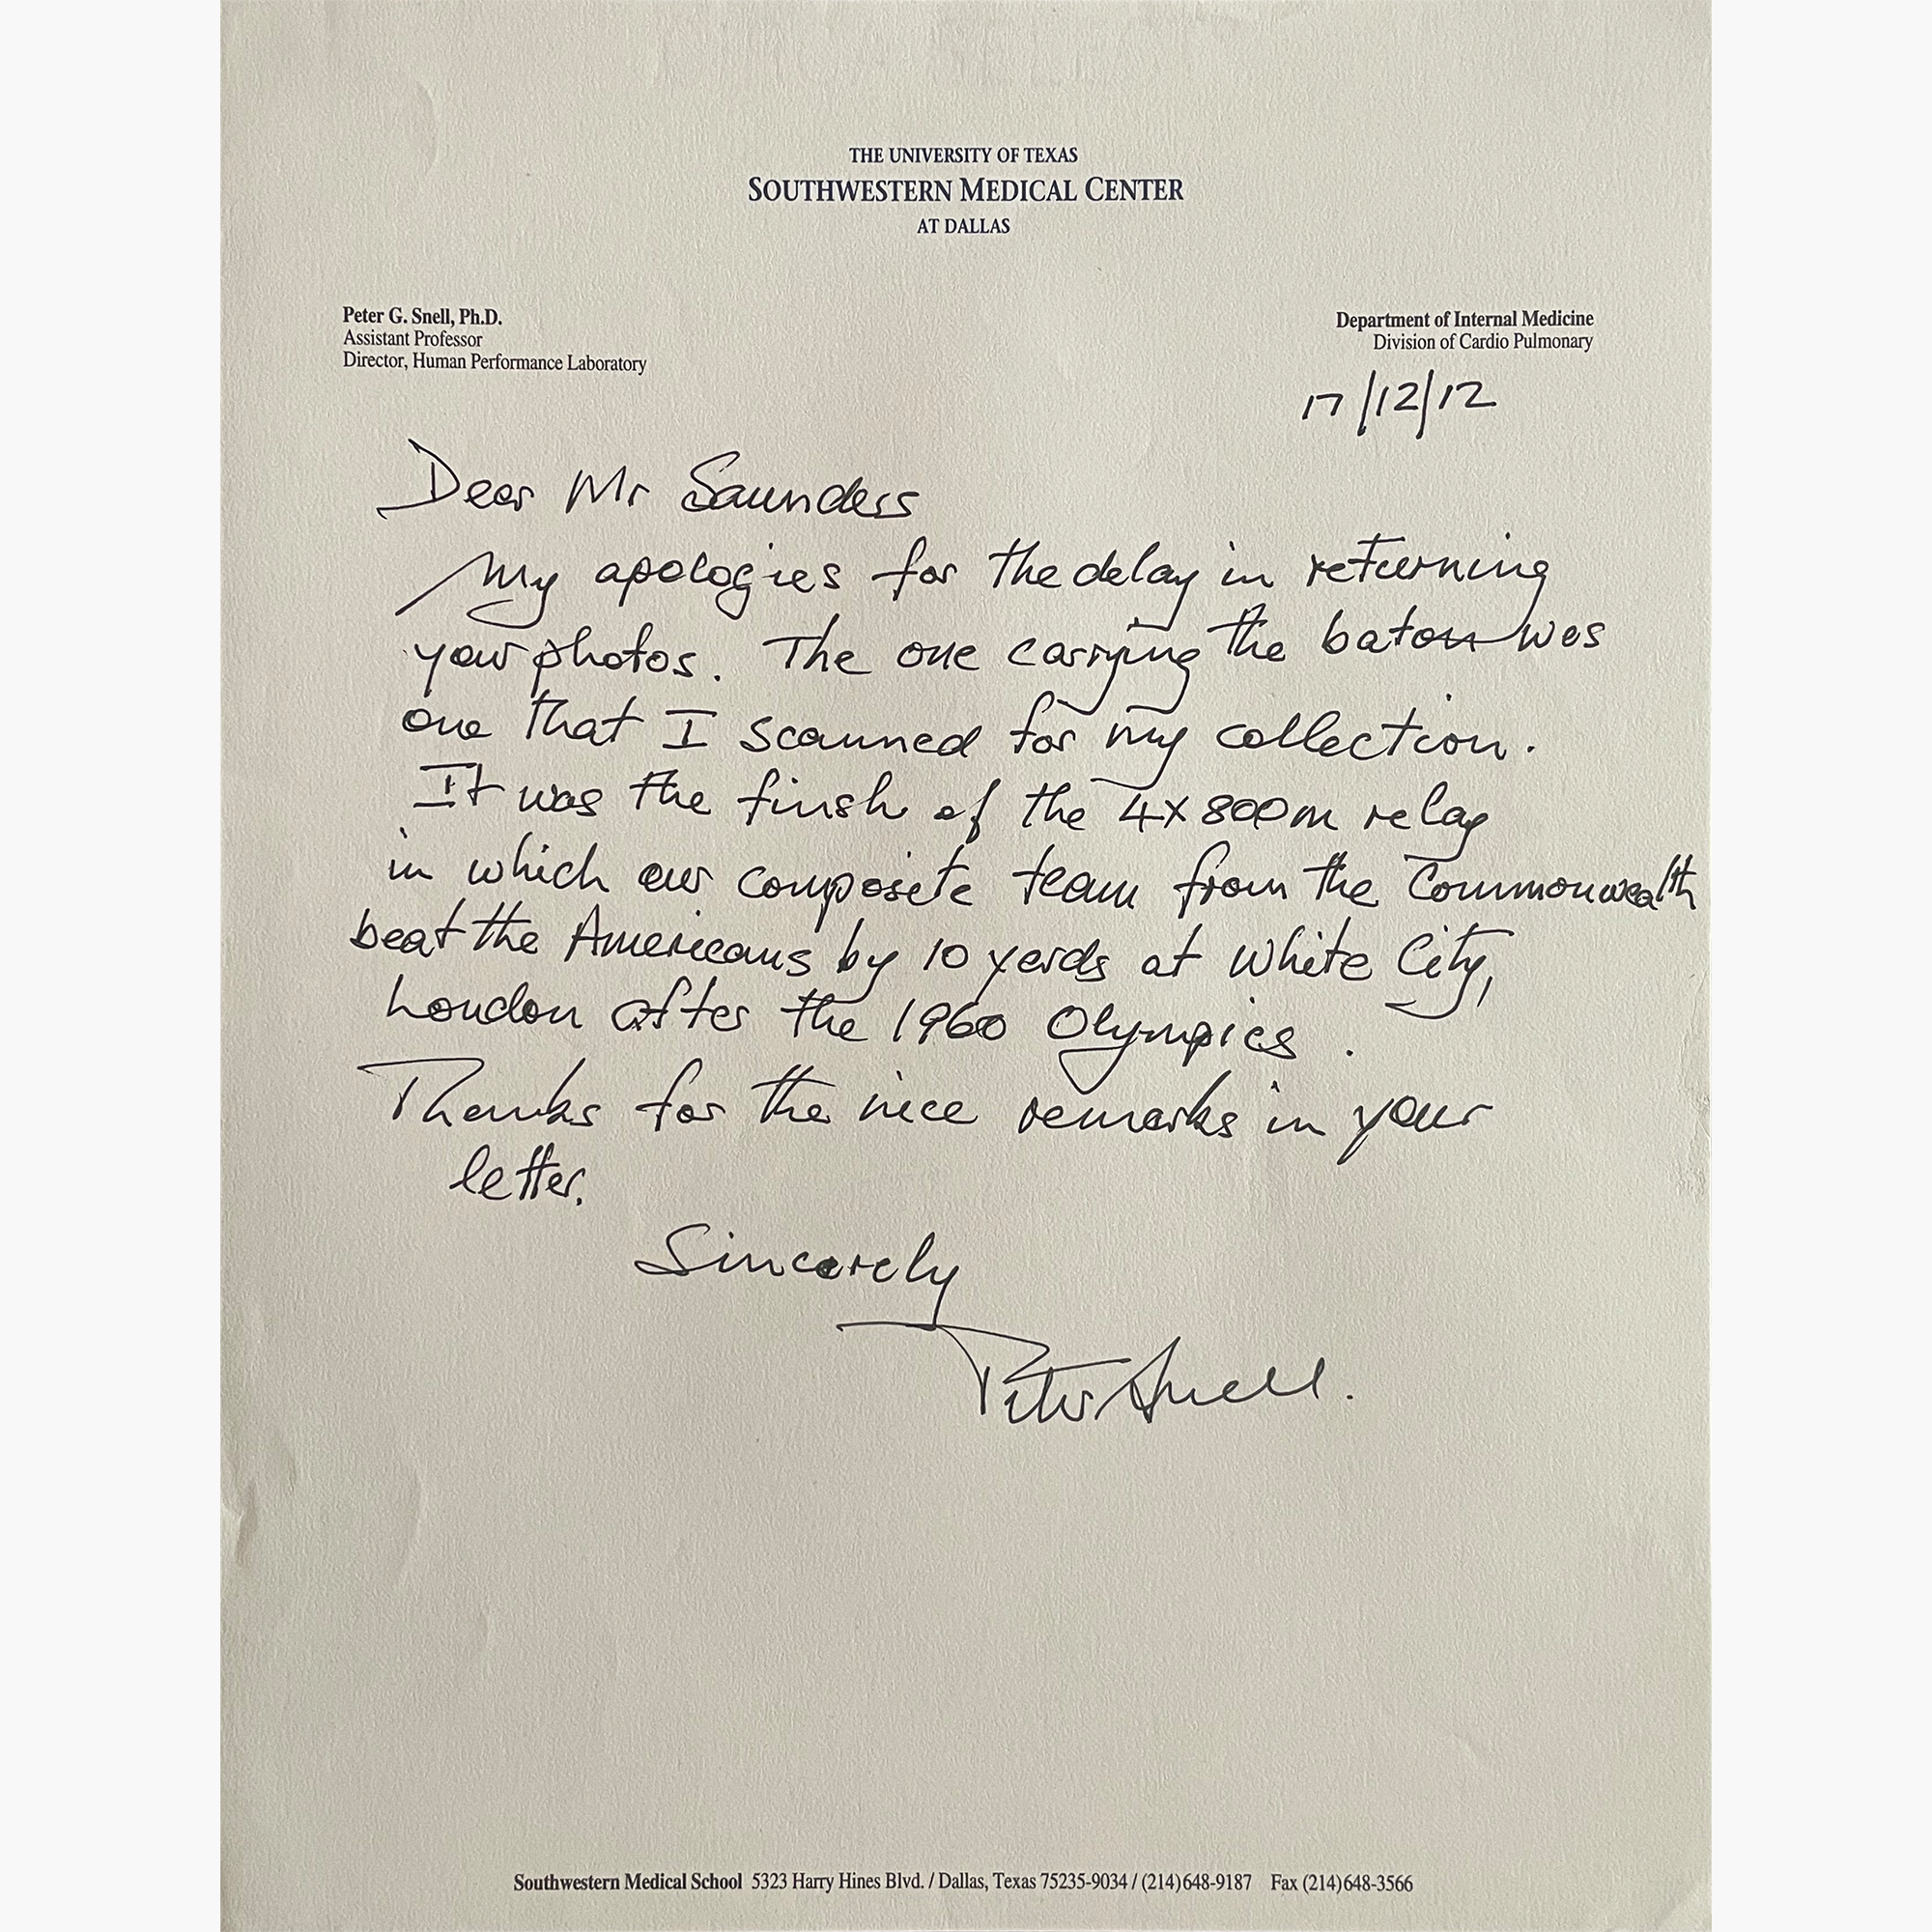 THE UNIVERSITY OF TEXAS
SOUTHWESTERN MEDICAL CENTER
AT DALLAS
Peter G. Snell, Ph.D.
Assistant Professor
Director, Human Performance Laboratory
Department of Internal Medicine
Division of Cardio Pulmonary
17/12/12
Dear Mr Saunders
My apologies for the delay in returning
your photos. The one carrying the baton was
one that I scanned for my collection.
It was the finish of the 4x800m relay
in which our composite team from the Commonwealth
beat the Americans by 10 yards at White City,
London after the 1960 Olympics.
Thanks for the nice remarks in your
letter.
Sincerely
Peter Snell.
Southwestern Medical School 5323 Harry Hines Blvd. / Dallas, Texas 75235-9034 / (214)648-9187 Fax (214)648-3566